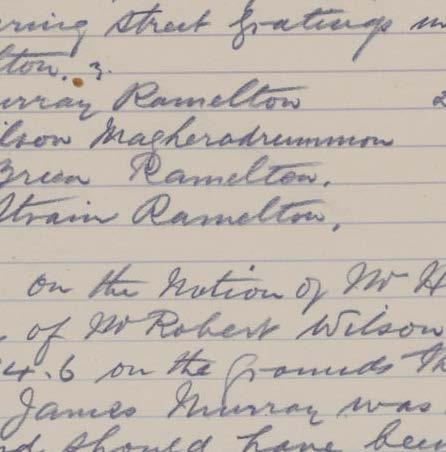 ring Street Gratings in
lton. 3.
urray Ramelton 2
ilson Magheradrummon
Brien Ramelton.
Strain Ramelton.
On the Motion of Mr H
of Mr Robert Wilson
4.6 on the grounds Th
James Murray was
nd should have been